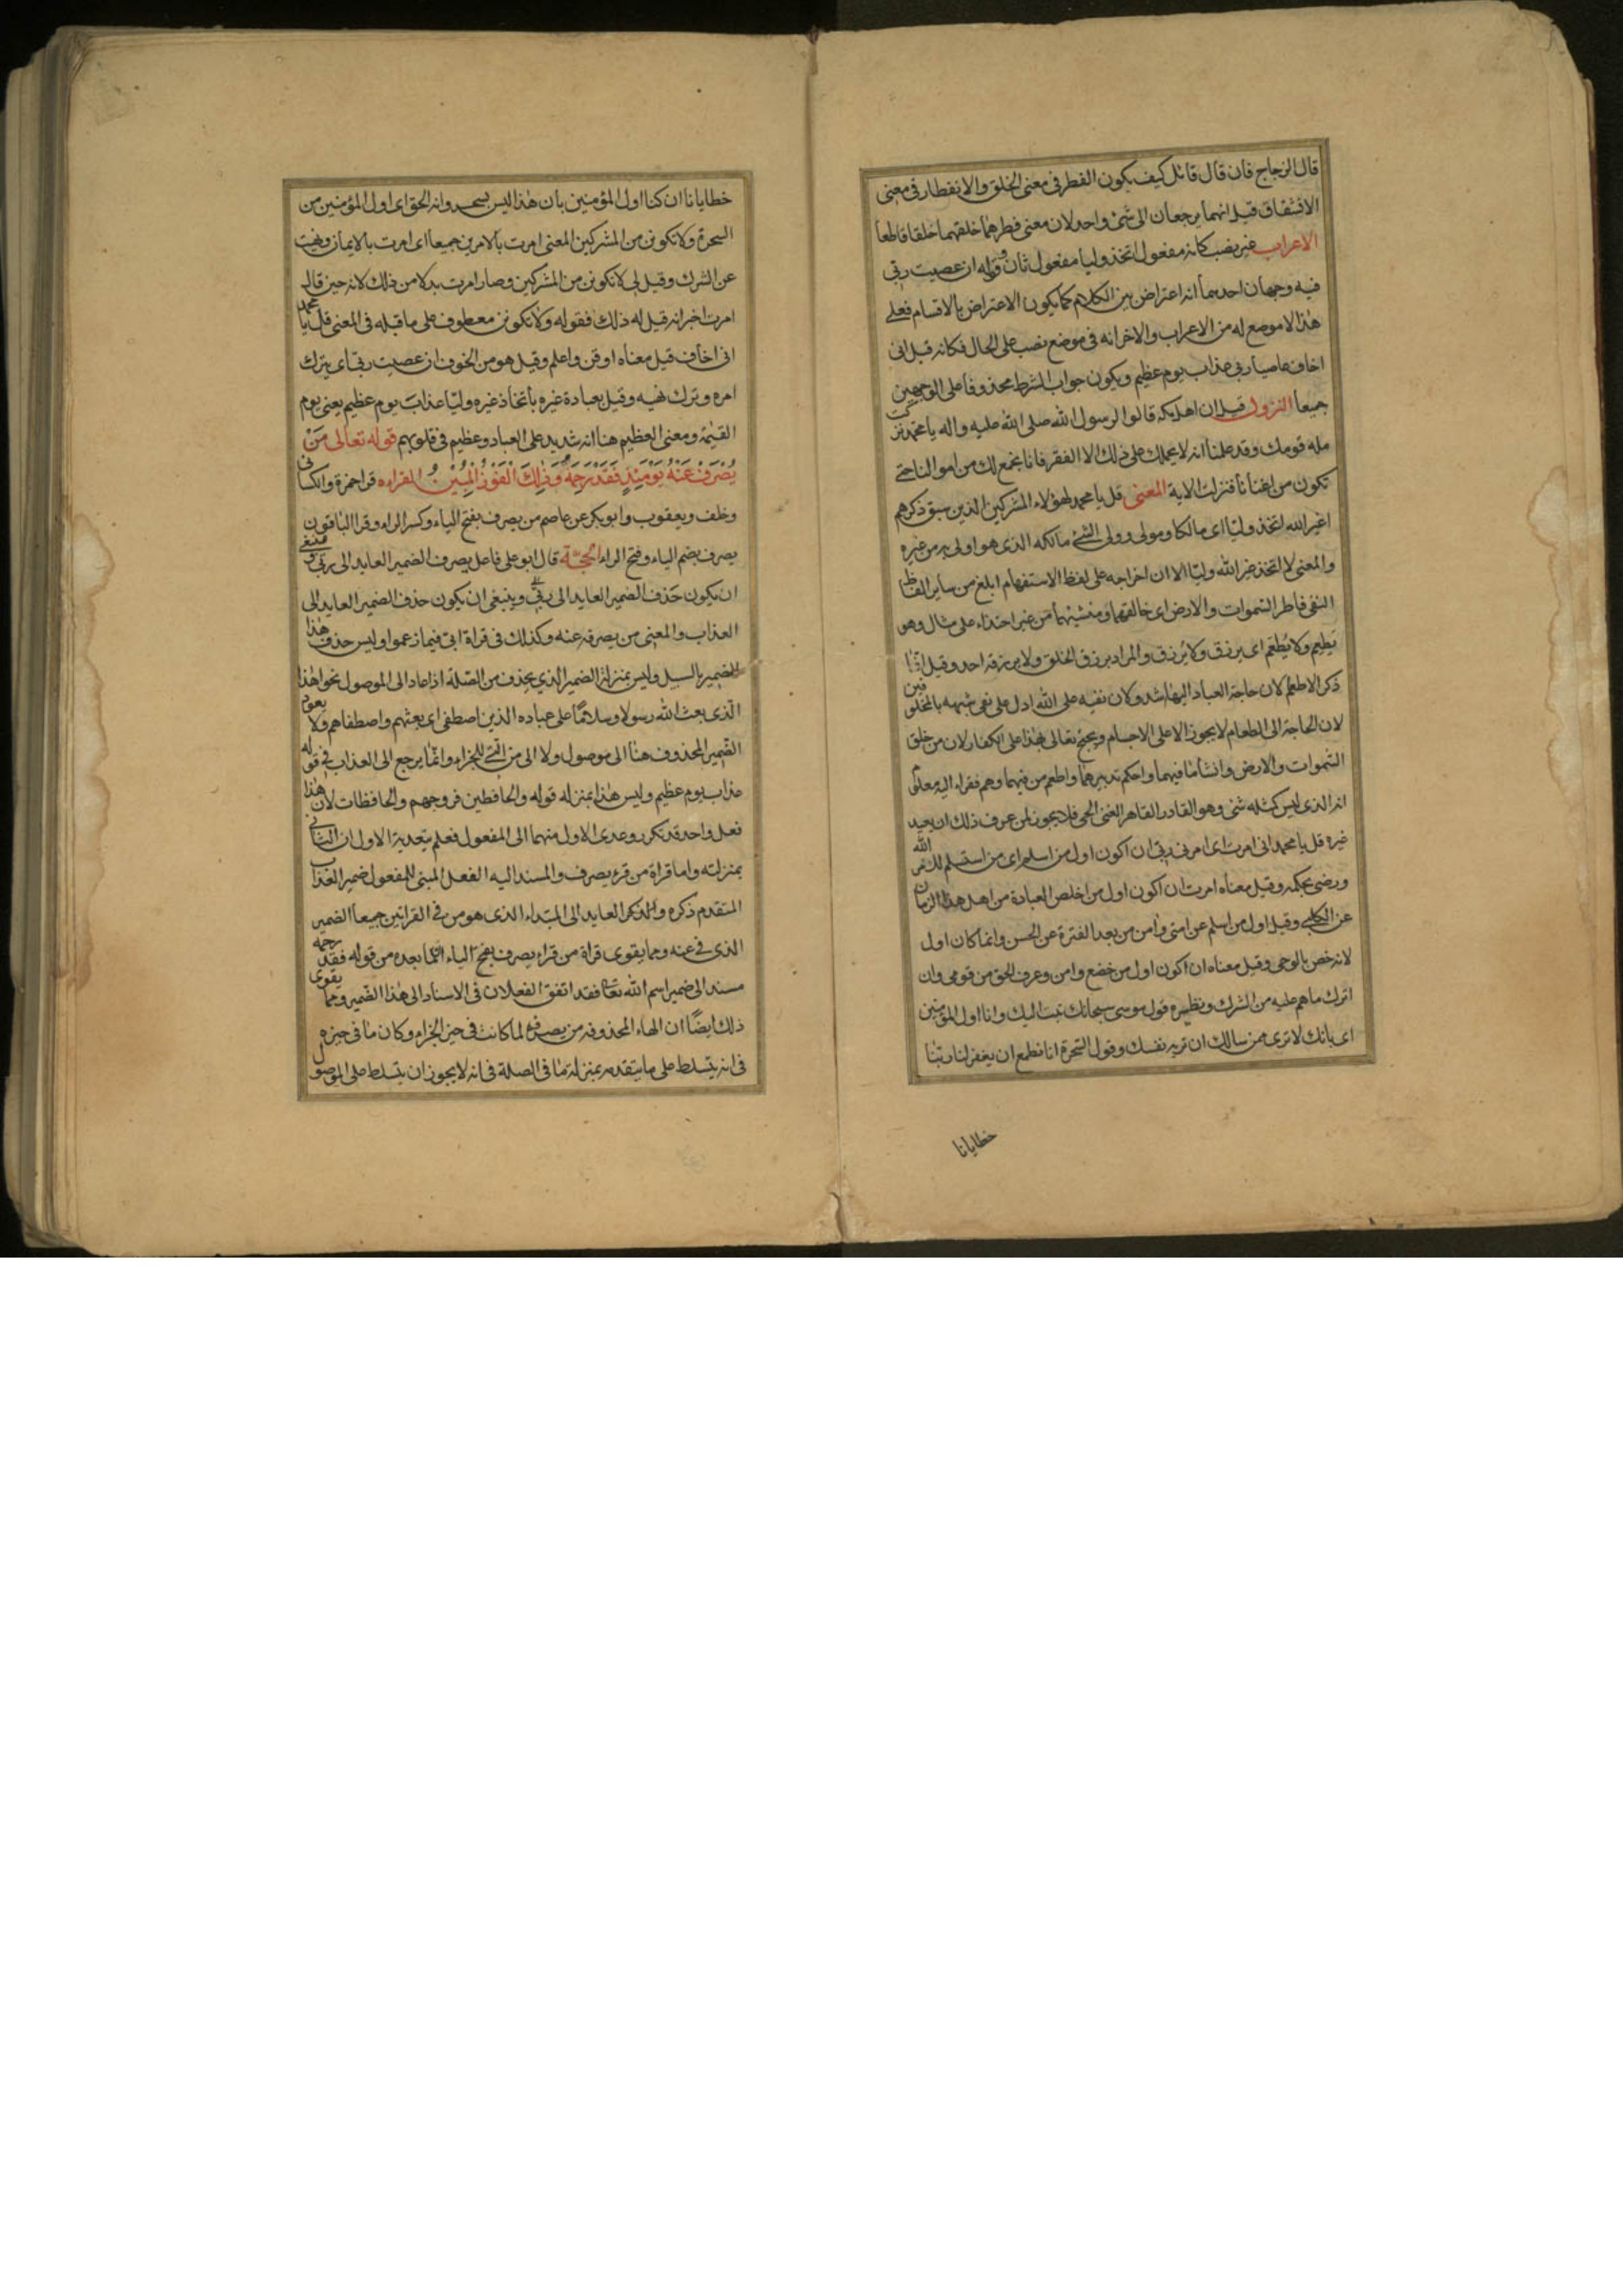 قال الزجاج فان قال قائل كيف يكون الفطر فى معنى الخلق والانفطار فى معنى
الانشقاق قيل انهما يرجعان الى شئ واحد لان معنى فطرهما خلقهما خلقا قاطعا
الاعراب غير نصب كانه مفعول اتخذ وليا مفعول ثان وقوله ان عصيت ربى
فيه وجهان احدهما انه اعتراض بين الكلام كما يكون الاعتراض بالاقسام فعلى
هذا لا موضع له من الاعراب والاخر انه فى موضع نصب على الحال فكانه قيل انى
اخاف عاصيا ربى عذاب يوم عظيم ويكون جواب الشرط محذوفا على الوجهين
جميعا النزول قيل ان اهل مكه قالوا لرسول الله صلى الله عليه واله يا محمد تركت
مله قومك وقد علمنا انه لا يحملك على ذلك الا الفقر فانا نجمع لك من اموالنا حتى
تكون من اغنانا فنزلت الاية المعنى قل يا محمد لهؤلاء المشركين الذين سبق ذكرهم
اغير الله اتخذ وليا اى مالكا ومولى وولى الشئ مالكه الذى هو اولى به من غيره
والمعنى لا اتخذ غير الله وليا الا ان اخراجه على لفظ الاستفهام ابلغ من ساير الفاظ
النفى فاطر السموات والارض اى خالقهما ومنشئهما من غير احتذاء على مثال وهو
يطعم ولا يطعم اى يرزق ولا يرزق والمراد يرزق الخلق ولا يرزقه احد وقيل انما
ذكر الاطعام لان حاجة العباد اليها اشد وكان نفيه على الله ادل على نفى شبهه بالمخلوقين
لان الحاجة الى الطعام لا يجوز الا على الاجسام ويحتج تعالى بهذا على الكفار لان من خلق
السموات والارض وانشأ ما فيهما واحكم تدبيرهما واطعم من فيهما وهم فقراء اليه معلوم
انه الذى ليس كمثله شئ وهو القادر القاهر الغنى الحى فلا يجوز لمن عرف ذلك ان يعبد
غيره قل يا محمد انى امرت اى امرنى ربى ان اكون اول من اسلم اى من استسلم لامر الله
ورضى بحكمه وقيل معناه امرت ان اكون اول من اخلص العبادة من اهل هذا الزمان
عن الكلبى وقيل اول من اسلم عن امتى وامن من بعد الفترة عن الحسن وانما كان اول
لانه خص بالوحى وقيل معناه ان اكون اول من خضع وامن وعرف الحق من قومى وان
اترك ما هم عليه من الشرك ونظيره قول موسى سبحانك تبت اليك وانا اول المؤمنين
اى بانك لا ترى ممن سالك ان تريه نفسك وقول السحرة انا نطمع ان يغفر لنا ربنا
خطايانا
خطايانا ان كنا اول المؤمنين بان هذا ليس بسحر وانه الحق اى اول المؤمنين من
السحرة ولا تكونن من المشركين المعنى امرت بالامرين جميعا اى امرت بالايمان ونهيت
عن الشرك وقيل لى لا تكونن من المشركين وصار امرت بدلا من ذلك لانه حين قال
امرت اخبر انه قيل له ذلك فقوله ولا تكونن معطوف على ما قبله فى المعنى قل يا محمد
انى اخاف قيل معناه اوقن واعلم وقيل هو من الخوف ان عصيت ربى اى بترك
امره وترك نهيه وقيل بعبادة غيره باتخاذ غيره وليا عذاب يوم عظيم يعنى يوم
القيمة ومعنى العظيم هنا انه شديد على العباد وعظيم فى قلوبهم قوله تعالى مَنْ
يُصْرَفْ عَنْهُ يَوْمَئِذٍ فَقَدْ رَحِمَهُ وَذٰلِكَ الْفَوْزُ الْمُبِيْنُ القراءه قرا حمزة والكسائى
وخلف ويعقوب وابو بكر عن عاصم من يصرف بفتح الياء وكسر الراء وقرا الباقون
يصرف بضم الياء وفتح الراء الحجة قال ابو على فاعل يصرف الضمير العايد الى ربى وينبغى
ان يكون حذف الضمير العايد الى ربى وينبغى ان يكون حذف الضمير العايد الى
العذاب والمعنى من يصرفه عنه وكذلك فى قراة ابى فيما زعموا وليس حذف هذا
الضمير بالسبيل وليس بمنزلة الضمير الذى يحذف من الصلة اذا عاد الى الموصول نحو اهذا
الذى بعث الله رسولا وسلاما على عباده الذين اصطفى اى بعثهم واصطفاهم ولا يعود
الضمير المحذوف هنا الى موصول ولا الى من التى للجزاء وانما يرجع الى العذاب فى قوله
عذاب يوم عظيم وليس هذا بمنزله قوله والحافظين فروجهم والحافظات لان هذا
فعل واحد قد تكرر وعدى الاول منهما الى المفعول فعلم بتعدية الاول ان الثانى
بمنزلته واما قراة من قرء يصرف والمسند اليه الفعل المبنى للمفعول ضمير العذاب
المتقدم ذكره والذكر العايد الى المبتداء الذى هو من فى القراتين جميعا الضمير
الذى فى عنه ومما يقوى قراة من قراء يصرف بفتح الياء ان ما بعده من قوله فقد رحمه
مسند الى ضمير اسم الله تعالى فقد اتفق الفعلان فى الاسناد الى هذا الضمير ومما يقوى
ذلك ايضا ان الهاء المحذوفه من يصرفه لما كانت فى حيز الجزاء وكان ما فى حيزه
فى انه يتسلط على ما يتقدمه بمنزلة ما فى الصلة فى انه لا يجوز ان يتسلط على الموصول